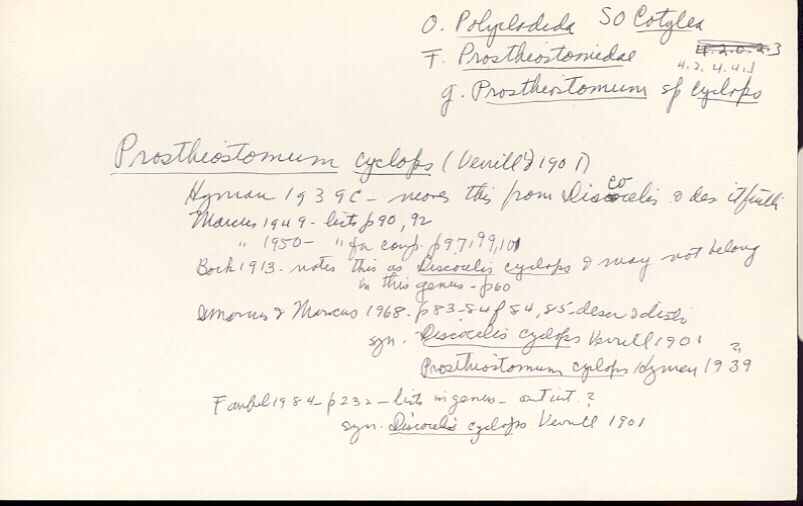 O. Polycladida SO Cotylea
F. Prosthiostomidae
4.2.4.4.1
g. Prosthiostomum sp cyclops
Prosthiostomum cyclops (Verrill 1901)
Hyman 1939c - moves this from Discocelis & des it fully
Marcus 1949 - lists p90, 92
" 1950 - " for comp. p97, 99, 101
Bock 1913 - notes this as Discocelis cyclops & may not belong
in this genus - p60
& Marcus 1968 - p83-84 f 84, 85 - descr & distr
syn. Discocelis cyclops Verrill 1901
Prosthiostomum cyclops Hyman 1939 ?
Faubel 1984 - p232 - lists in genus - ?
syn. Discocelis cyclops Verrill 1901